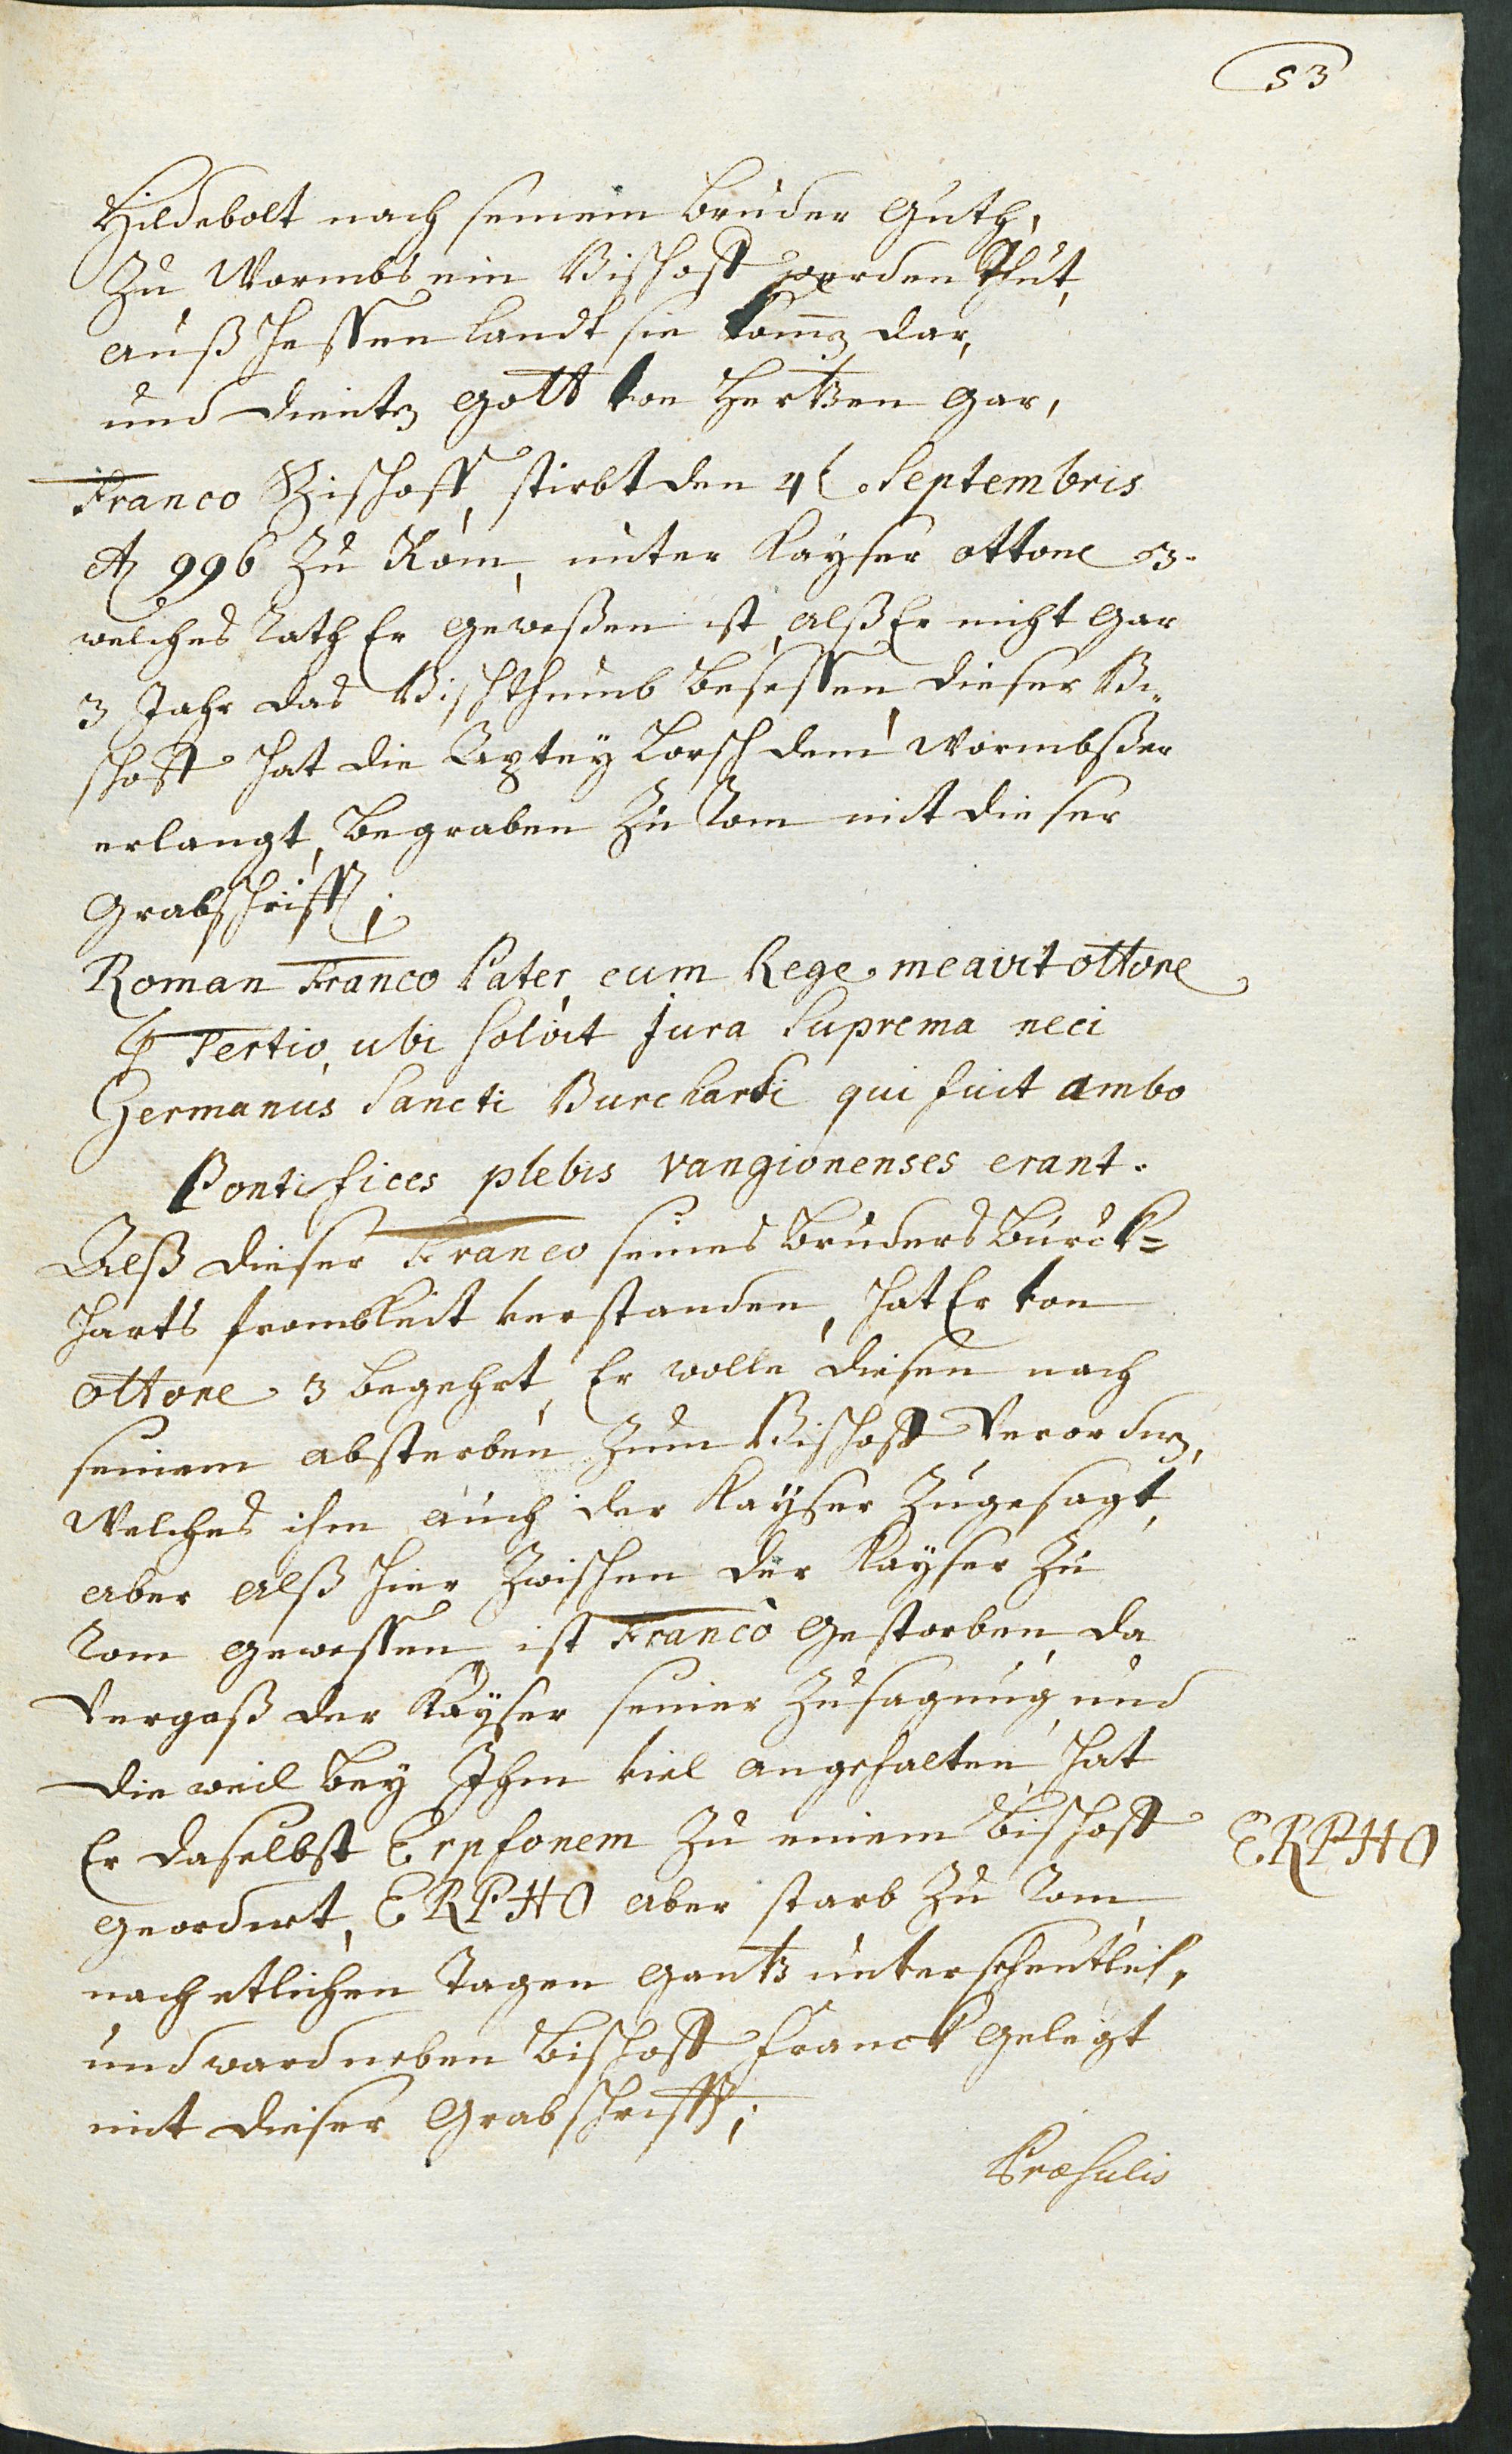 53
Hildebolt nach seinem bruder guth,
Zu Wormbs ein Bischoff werden thut,
auß Hessen landt sie komen dar,
und dienten gott von Hertzen gar,
Franco Bischoff, stirbt den 4t. Septembris
Ao 996 Zu Rom, unter Kayser ottone 3.
welches rath Er geweßen ist, alß Er nicht gar
3 Jahr das Bischthumb besessen, dieser Bi-
schoff hat die Aptey Lorsch dem Wormbßer
erlangt, begraben zu Rom mit dieser
Grabschrifft;
Roman Franco Pater, cum Rege meavit ottone
Tertio, ubi solvit Jura Suprema neci
Germanus Sancti Burchardi qui fuit ambo
Pontifices plebis vangionenses erant.
Alß dieser Franco seines bruders Burck=
harts frombkeit verstanden, hat Er von
ottone 3 begehrt, Er wolle diesen nach
seinem absterben zum Bischoff verordnen,
Welches ihm auch der Kayser zugesagt,
aber alß hier Zwischen der Kayser zu
Rom gewessen, ist Franco gestorben, da
Vergaß der Kayser seiner zusagung, und
die weil bey Ihm viel angehalten, hat
Er daselbst Erpfonem zu einem bischoff
ERPHO
geordnet, ERPHO aber starb zu Rom
nach etlichen Tagen gantz unversehentlich,
und ward neben bischoff Franck gelegt
mit dieser Grabschrifft;
Præsulis